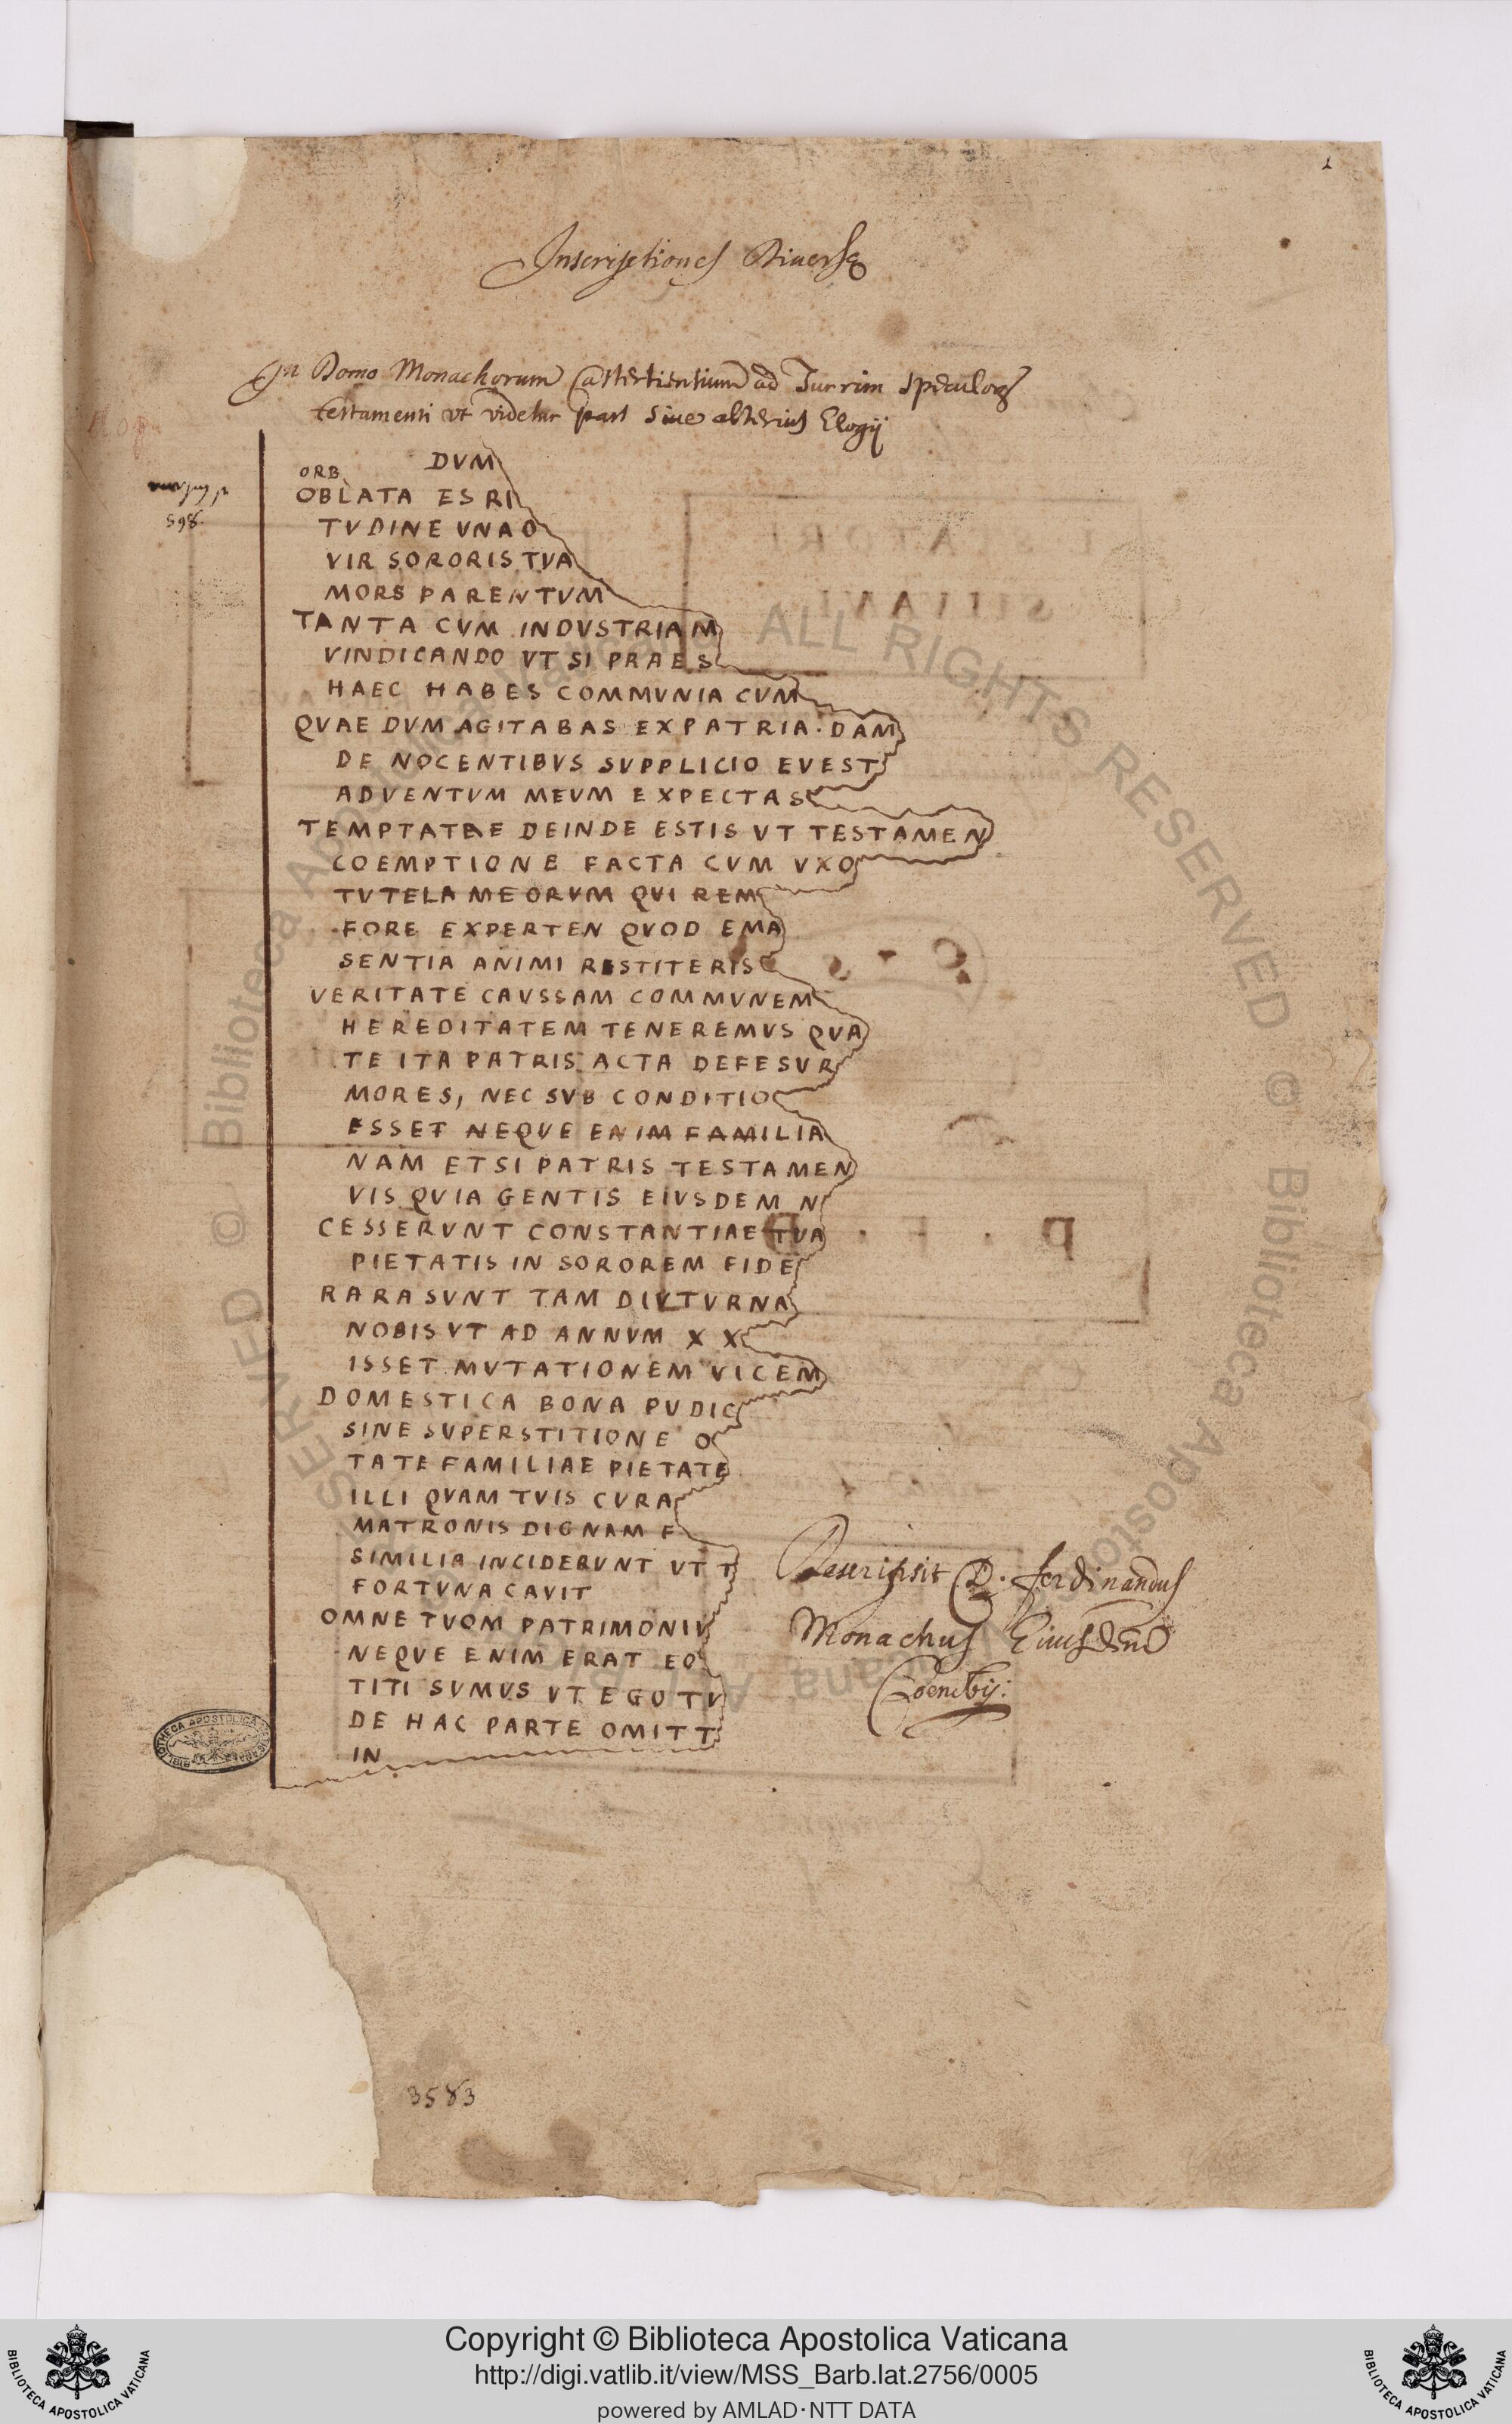 1
Inscriptiones Diuersę
In Domo Monachorum ad Turrim
testamenti vt videtur pars siue alterius Elogij
DVM
ORB
OBLATA ES RI
TVDINE VNA O
VIR SORORIS TVA
MORS PARENTVM
TANTA CVM INDVSTRIAM
VINDICANDO VT SI PRAES
HAEC HABES COMMVNIA CVM
QVAE DVM AGITABAS EX PATRIA · DAM
DE NOCENTIBVS SVPPLICIO EVEST
ADVENTVM MEVM EXPECTAS
TEMPTATAE DEINDE ESTIS VT TESTAMEN
COEMPTIONE FACTA CVM VXO
TVTELA MEORVM QVI REM
FORE EXPERTEN QVOD EMA
SENTIA ANIMI RESTITERIS
VERITATE CAVSSAM COMMVNEM
HEREDITATEM TENEREMVS QVA
TE ITA PATRIS ACTA DEFESVR
MORES, NEC SVB CONDITIO
ESSET NEQVE ENIM FAMILIA
NAM ETSI PATRIS TESTAMEN
VIS QVIA GENTIS EIVSDEM N
CESSERVNT CONSTANTIAE TVA
PIETATIS IN SOROREM FIDE
RARA SVNT TAM DIVTVRNA
NOBIS VT AD ANNVM X X
ISSET MVTATIONEM VICEM
DOMESTICA BONA PVDIC
SINE SVPERSTITIONE O
TATE FAMILIAE PIETATE
ILLI QVAM TVIS CVRA
MATRONIS DIGNAM F
SIMILIA INCIDERVNT VT T
FORTVNA CAVIT
OMNE TVOM PATRIMONIV
NEQVE ENIM ERAT EO
TITI SVMVS VT EGO TV
DE HAC PARTE OMITT
IN
Descripsit D. Ferdinandus
Monachus Eiusdem
Coenobij:
865
3583
ALL RIGHTS RESERVED © Biblioteca Apostolica Vaticana
Copyright © Biblioteca Apostolica Vaticana
http://digi.vatlib.it/view/MSS_Barb.lat.2756/0005
powered by AMLAD·NTT DATA
BIBLIOTECA APOSTOLICA VATICANA
BIBLIOTECA APOSTOLICA VATICANA